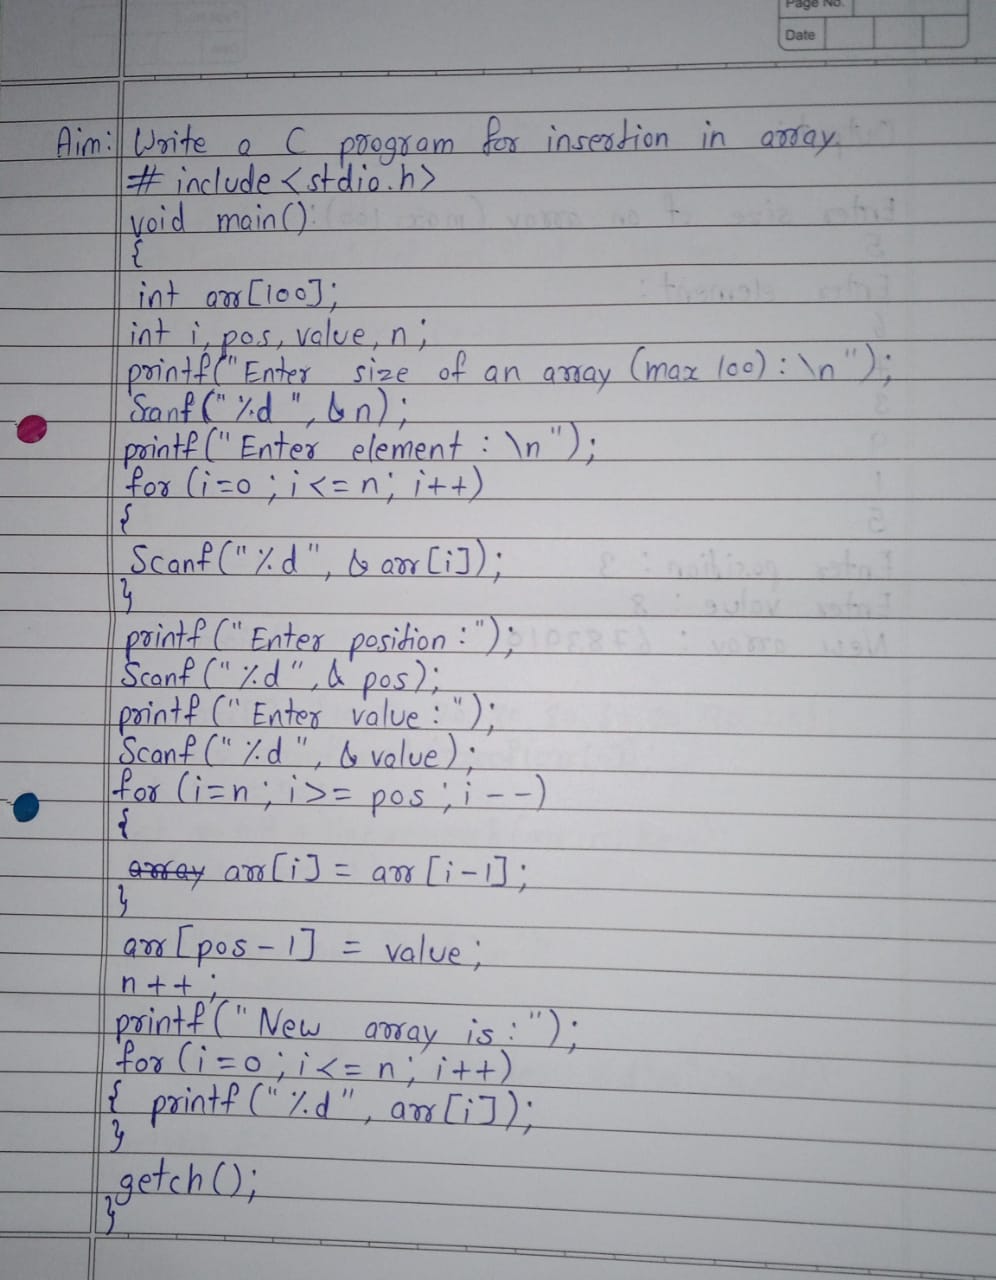 Page No.
Date
Aim: Write a C program for insertion in array.
# include <stdio.h>
void main():
{
int arr[100];
int i, pos, value, n;
printf("Enter size of an array (max 100) : \n");
Sanf("%d", &n);
printf("Enter element : \n");
for (i=0 ; i<=n; i++)
{
Scanf("%d", & arr[i]);
}
printf ("Enter position :");
Scanf ("%d", & pos);
printf ("Enter value :");
Scanf ("%d", & value);
for (i=n ; i>= pos ; i--)
{
array arr[i] = arr [i-1];
}
arr [pos - 1] = value;
n++;
printf("New array is :");
for (i=0 ; i<=n; i++)
{ printf ("%d", arr[i]);
}
getch();
}